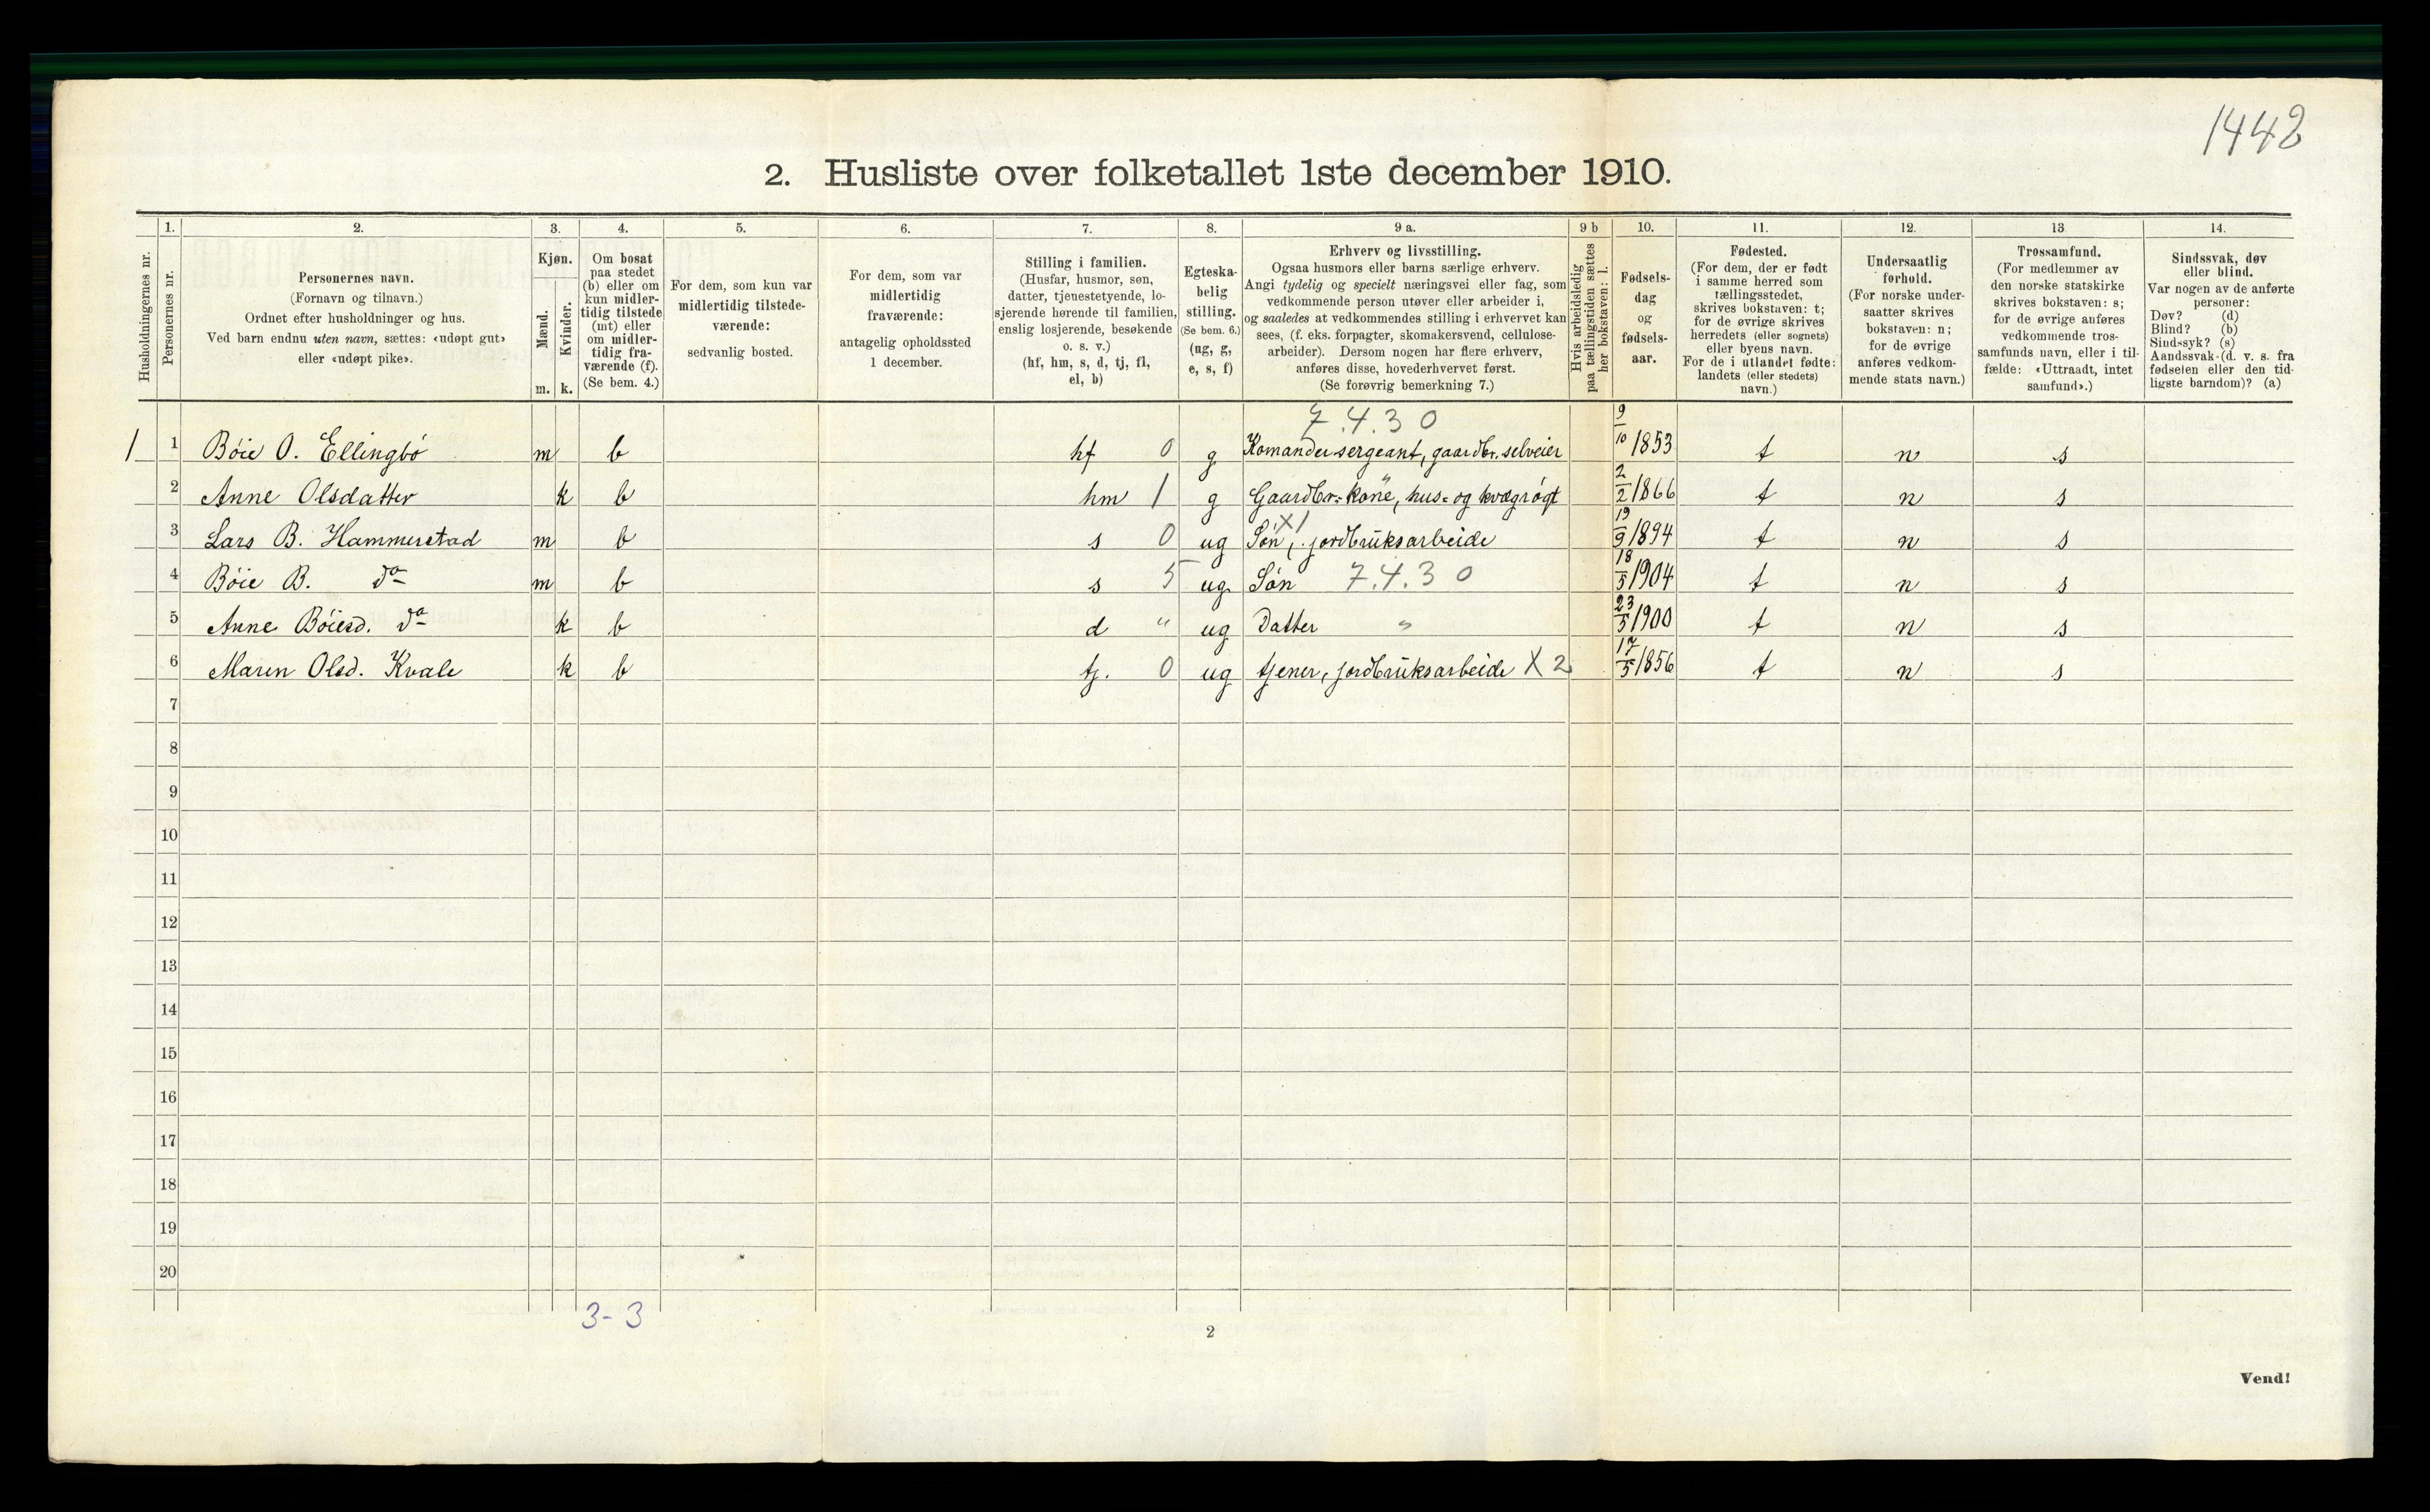 1442
2. Husliste over folketallet 1ste december 1910.
Husholdningernes nr.
1. Personernes nr.
2. Personernes navn.
(Fornavn og tilnavn.)
Ordnet efter husholdninger og hus.
Ved barn endnu uten navn, sættes: «udøpt gut»
eller «udøpt pike».
3. Kjøn.
Mænd. m.
Kvinder. k.
4. Om bosat
paa stedet
(b) eller om
kun midler-
tidig tilstede
(mt) eller
om midler-
tidig fra-
værende (f).
(Se bem. 4.)
5. For dem, som kun var
midlertidig tilstede-
værende:
sedvanlig bosted.
6. For dem, som var
midlertidig
fraværende:
antagelig opholdssted
1 december.
7. Stilling i familien.
(Husfar, husmor, søn,
datter, tjenestetyende, lo-
sjerende hørende til familien,
enslig losjerende, besøkende
o. s. v.)
(hf, hm, s, d, tj, fl,
el, b)
8. Egteska-
belig
stilling.
(Se bem. 6.)
(ug, g,
e, s, f)
9 a. Erhverv og livsstilling.
Ogsaa husmors eller barns særlige erhverv.
Angi tydelig og specielt næringsvei eller fag, som
vedkommende person utøver eller arbeider i,
og saaledes at vedkommendes stilling i erhvervet kan
sees, (f. eks. forpagter, skomakersvend, cellulose-
arbeider). Dersom nogen har flere erhverv,
anføres disse, hovederhvervet først.
(Se forøvrig bemerkning 7.)
9 b Hvis arbeidsledig
paa tællingstiden sættes
her bokstaven: l.
10. Fødsels-
dag
og
fødsels-
aar.
11. Fødested.
(For dem, der er født
i samme herred som
tællingsstedet,
skrives bokstaven: t;
for de øvrige skrives
herredets (eller sognets)
eller byens navn.
For de i utlandet fødte:
landets (eller stedets)
navn.)
12. Undersaatlig
forhold.
(For norske under-
saatter skrives
bokstaven: n;
for de øvrige
anføres vedkom-
mende stats navn.)
13. Trossamfund.
(For medlemmer av
den norske statskirke
skrives bokstaven: s;
for de øvrige anføres
vedkommende tros-
samfunds navn, eller i til-
fælde: «Uttraadt, intet
samfund».)
14. Sindssvak, døv
eller blind.
Var nogen av de anførte
personer:
Døv? (d)
Blind? (b)
Sindssyk? (s)
Aandssvak (d. v. s. fra
fødselen eller den tid-
ligste barndom)? (a)
7.4.3 0
1 1 Bóie O. Ellingbó m b hf 0 g Komandersergeant, gaardbr. selveier 9/10 1853 t n s
2 Anne Olsdatter k b hm 1 g Gaardbr.-kone, hus- og kvægrógt 2/2 1866 t n s
X1
3 Lars B. Hammerstad m b s 0 ug Són, jordbruksarbeide 19/9 1894 t n s
4 Bóie B. do m b s 5 ug Són 7.4.3 0 18/5 1904 t n s
5 Anne Bóiesd. do k b d " ug Datter " 23/5 1900 t n s
6 Maren Olsd. Kvale k b tj. 0 ug tjener, jordbruksarbeide X 2 17/5 1856 t n s
7
8
9
10
11
12
13
14
15
16
17
18
19
20
3-3
2
Vend!